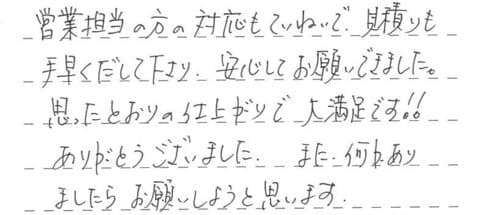 営業担当の方の対応もていねいで、見積りも
手早くだして下さり、安心してお願いできました。
思ったとおりの仕上がりで大満足です!!
ありがとうございました。また何かあり
ましたらお願いしようと思います。